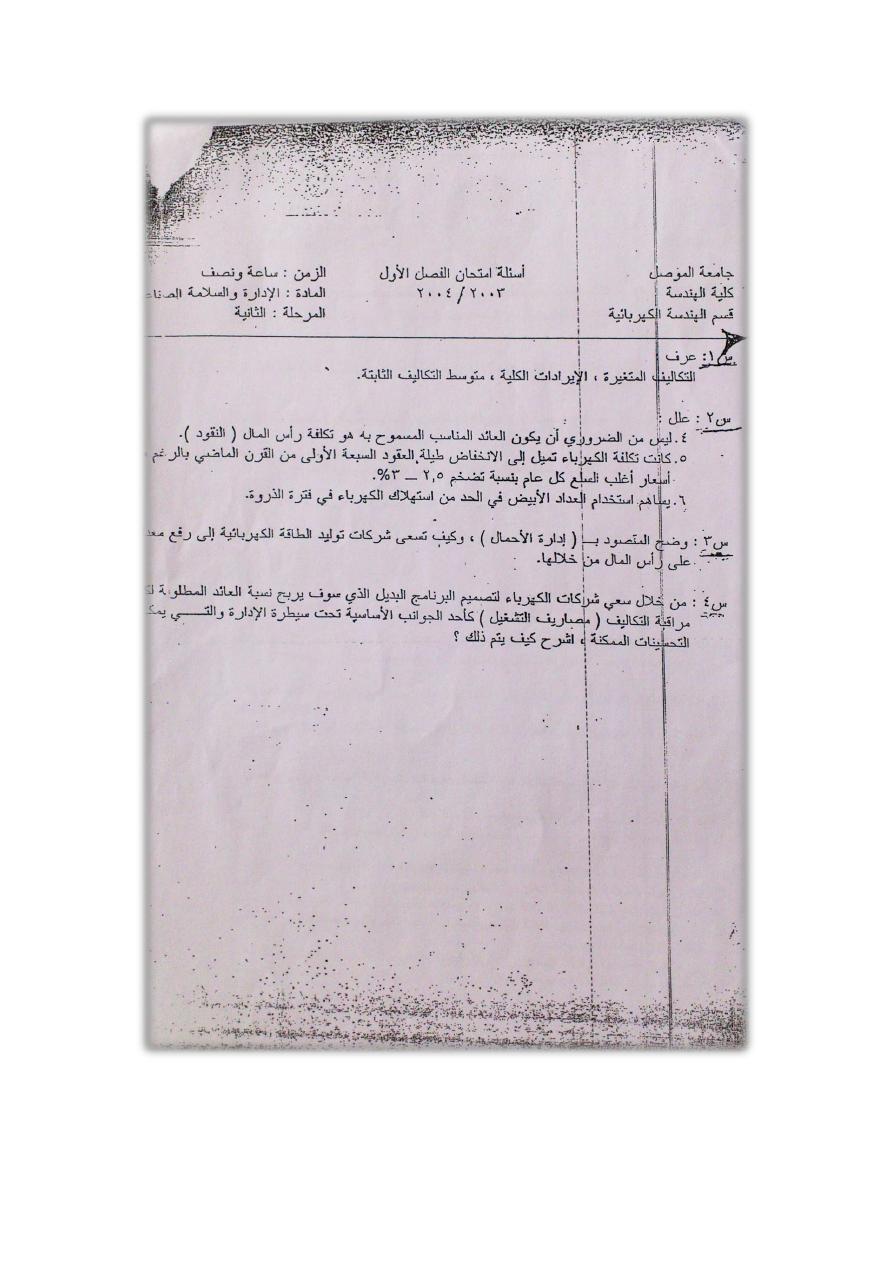 جامعة الموصل أسئلة امتحان الفصل الأول الزمن : ساعة ونصف
كلية الهندسة ٢٠٠٣/٢٠٠٤ المادة : الإدارة والسلامة
قسم الهندسة الكهربائية المرحلة : الثانية
س١: عرف
التكاليف المتغيرة ، الإيرادات الكلية ، متوسط التكاليف الثابتة.
س٢ : علل :
٤. ليس من الضروري أن يكون العائد المناسب المسموح به هو تكلفة رأس المال ( النقود ).
٥. كانت تكلفة الكهرباء تميل إلى الانخفاض طيلة العقود السبعة الأولى من القرن الماضي بالرغم
أسعار أغلب السلع كل عام بنسبة تضخم ٢,٥ – ٣%.
٦. يساهم استخدام العداد الأبيض في الحد من استهلاك الكهرباء في فترة الذروة.
س٣ : وضح المقصود بـ ( إدارة الأحمال ) ، وكيف تسعى شركات توليد الطاقة الكهربائية إلى رفع
على رأس المال من خلالها.
س٤ : من خلال سعي شركات الكهرباء لتصميم البرنامج البديل الذي سوف يربح نسبة العائد المطلوبة
مراقبة التكاليف ( مصاريف التشغيل ) كأحد الجوانب الأساسية تحت سيطرة الإدارة والتـــي
التحسينات الممكنة ، اشرح كيف يتم ذلك ؟